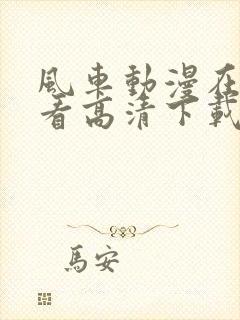 風車動漫在
看高清下載
馬安